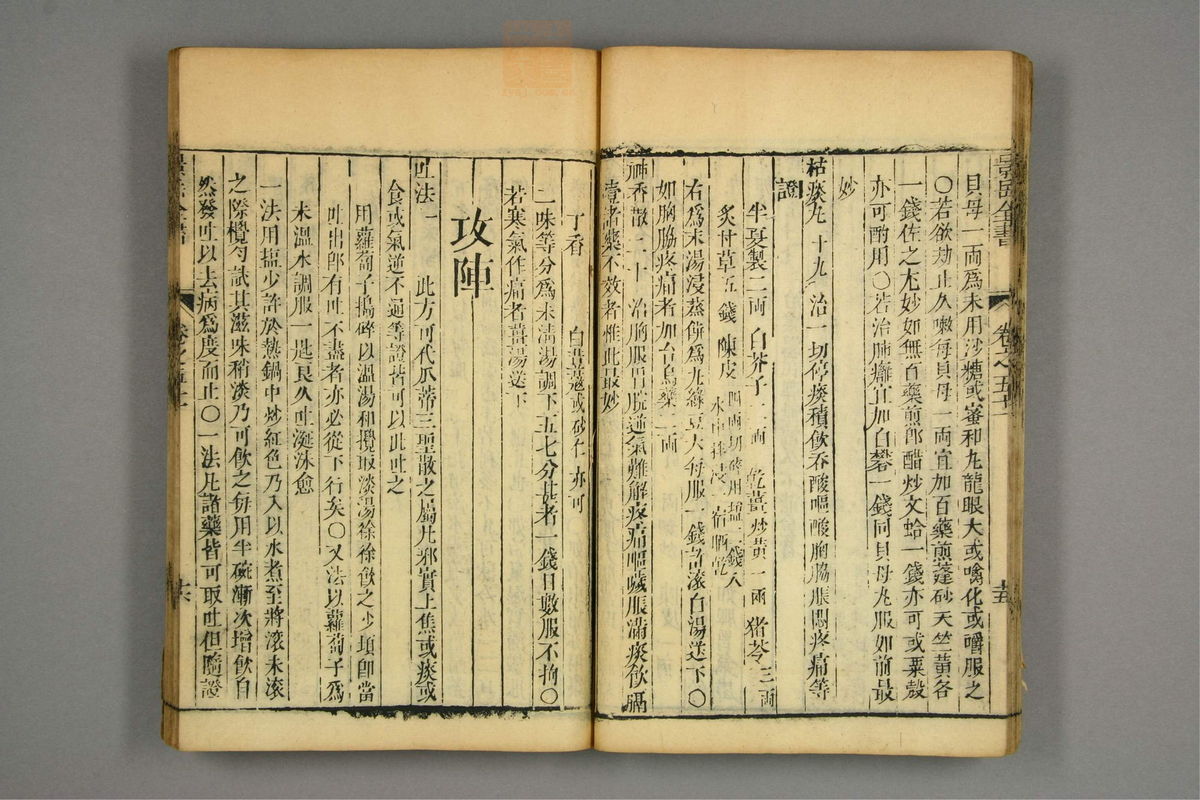 貝母一兩為末用沙糖或蜜和丸龍眼大或噙化或嚼服之
〇若欲劫止久嗽每貝母一兩宜加百藥煎蓬砂天竺黃各
一錢佐之尤妙如無百藥煎卽醋炒文蛤一錢亦可或粟殻
亦可酌用〇若治肺癰宜加白礬一錢同貝母丸服如前最
妙
祛痰丸 十九 治一切停痰積飲吞酸嘔酸胸脇脹悶疼痛等
證
半夏製二兩 白芥子二兩 乾薑炒黃一兩 猪苓三兩
炙甘草五錢 陳皮四兩切碎用鹽二錢入水中拌浸一宿晒乾
右為末湯浸蒸餅為丸綠豆大每服一錢許滾白湯送下〇
如胸脇疼痛者加台烏藥二兩
神香散 二十 治胸脇胃脘逆氣難解疼痛嘔噦脹滿痰飲膈
噎諸藥不效者惟此最妙
丁香 白荳蔲或砂仁亦可
二味等分為末淸湯調下五七分甚者一錢日數服不拘〇
若寒氣作痛者薑湯送下
攻陣
吐法 一 此方可代瓜蒂三聖散之屬凡邪實上焦或痰或
食或氣逆不通等證皆可以此吐之
用蘿蔔子搗碎以溫湯和攪取淡湯徐徐飲之少頃卽當
吐出卽有吐不盡者亦必從下行矣〇又法以蘿蔔子為
末溫水調服一匙良久吐涎沫愈
一法用鹽少許於熱鍋中炒紅色乃入以水煮至將滾未滾
之際攪勻試其滋味稍淡乃可飲之每用半碗漸次增飲自
然發吐以去病為度而止〇一法凡諸藥皆可取吐但隨證